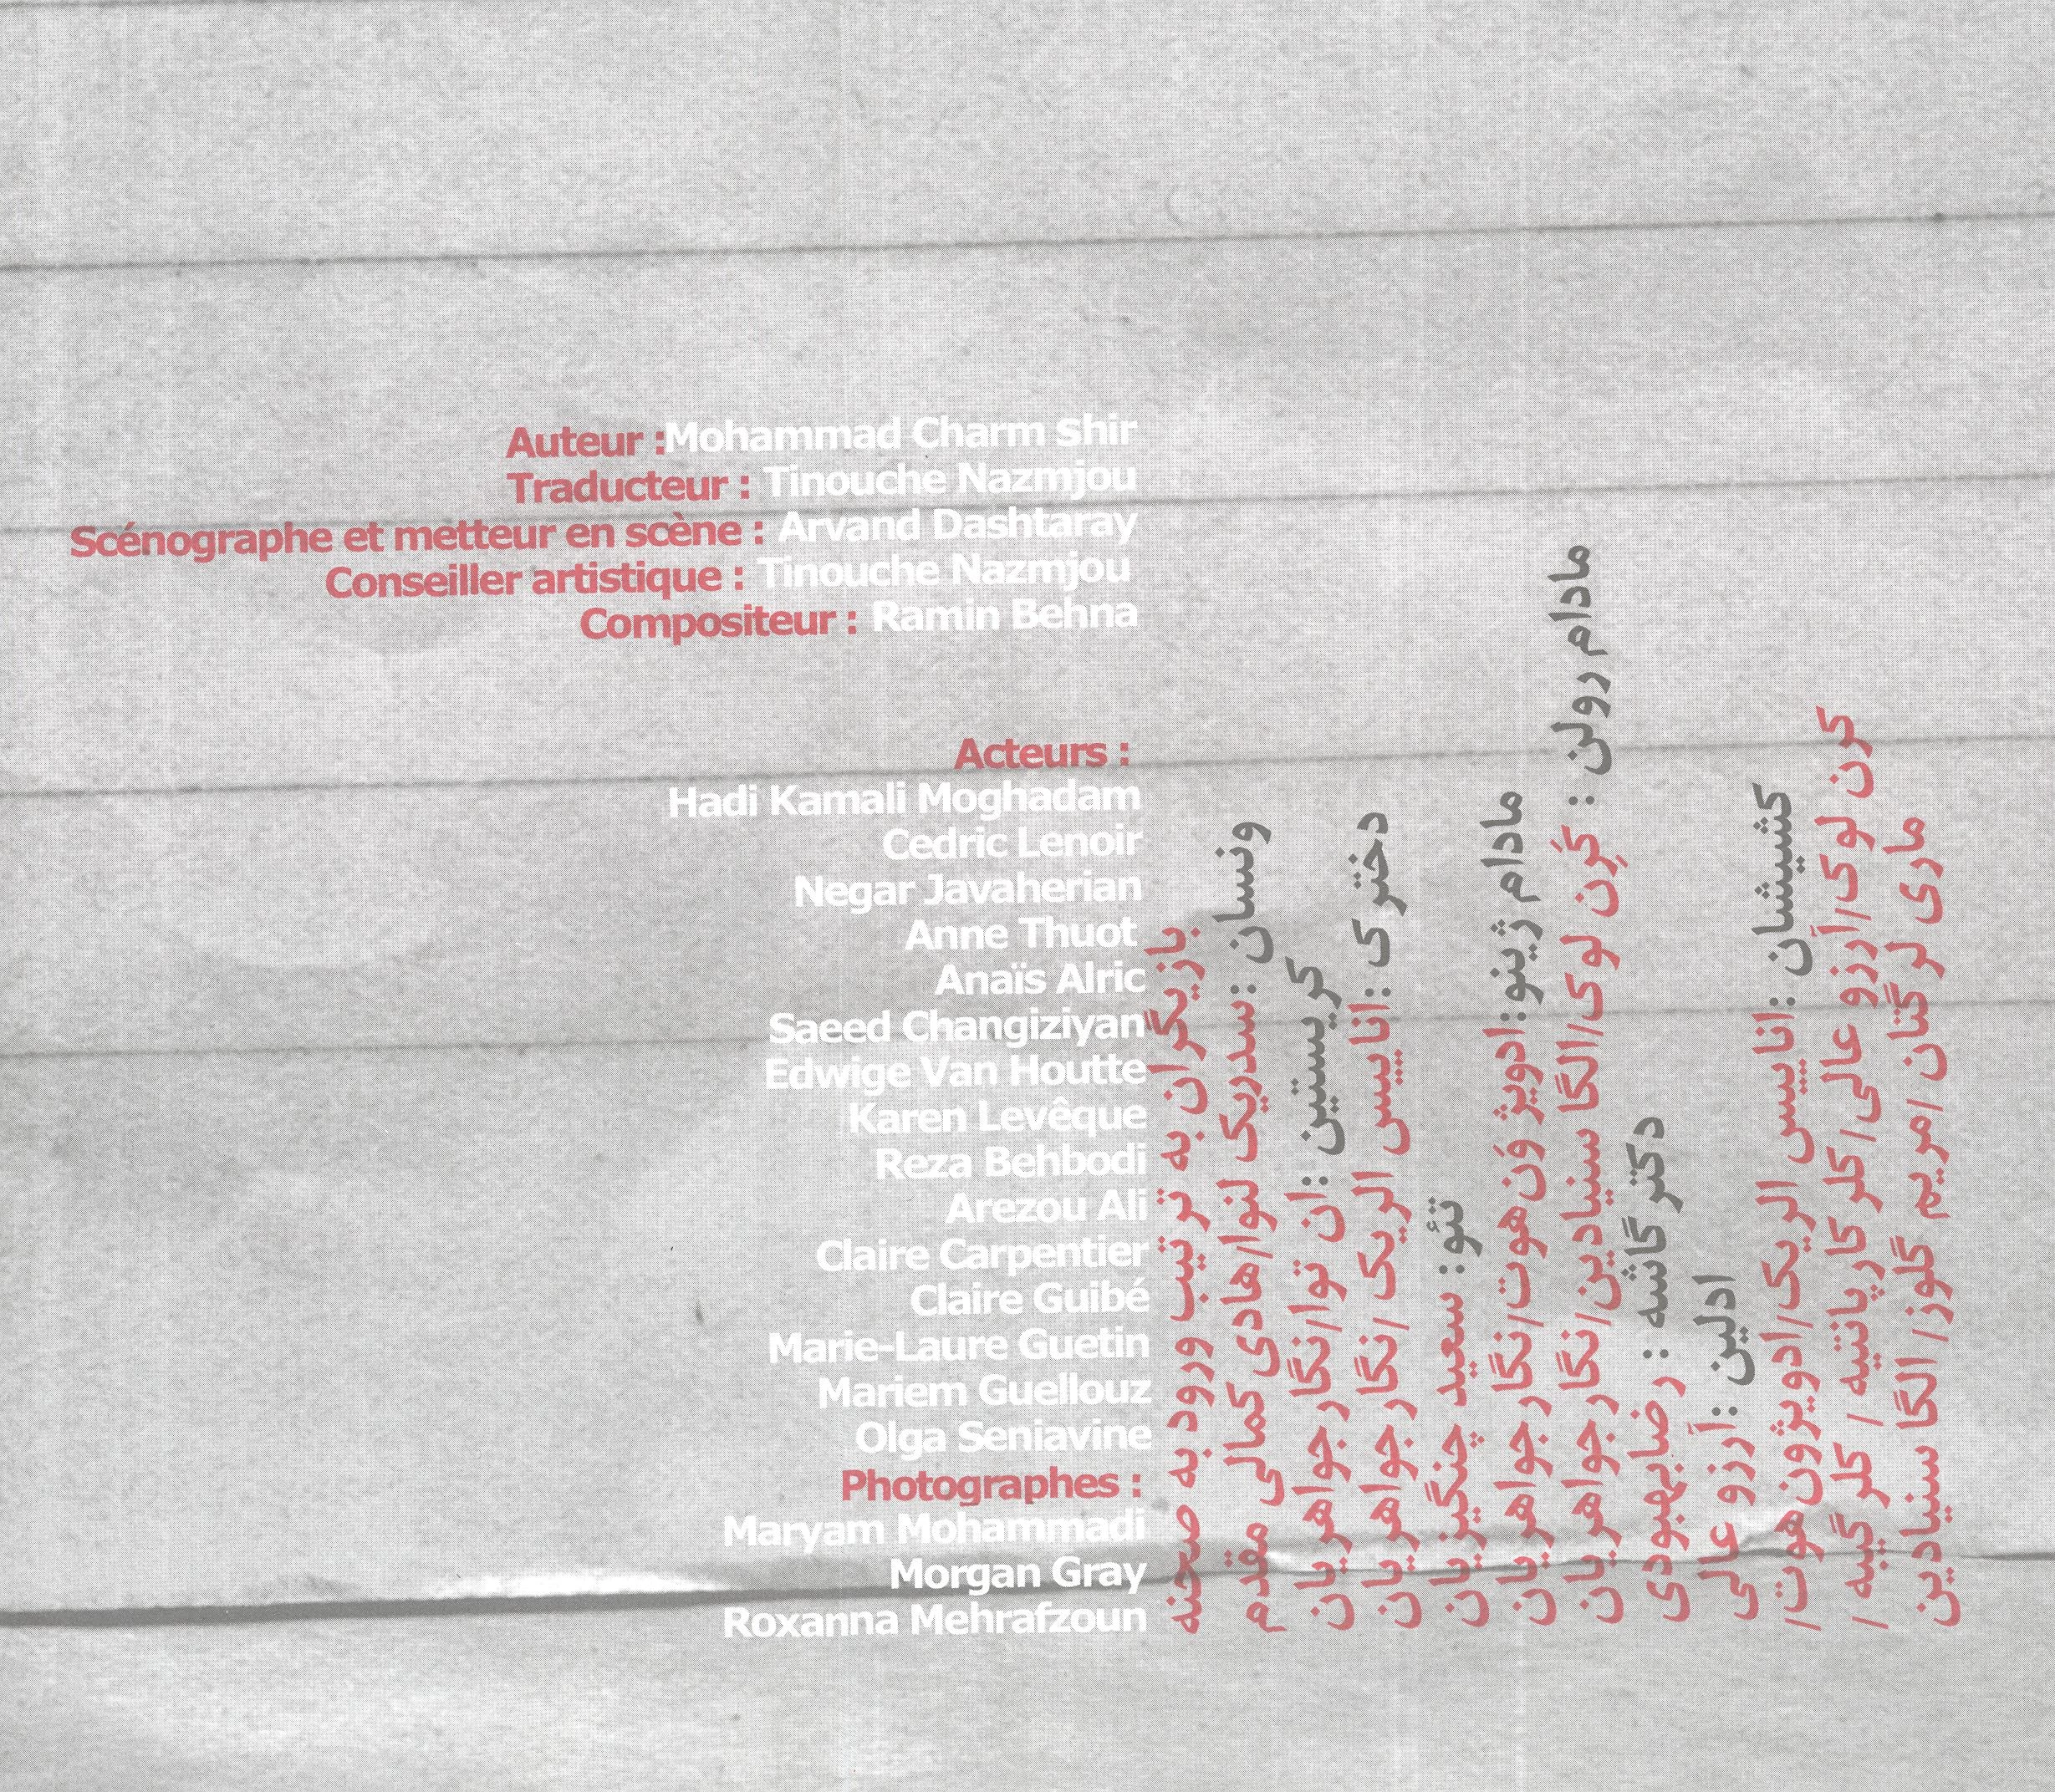 Auteur :Mohammad Charm shir
Traducteur : Tinouche Nazmjou
Scénographe et metteur en scène : Arvand Dashtaray
Conseiller artistique : Tinouche Nazmjou
Compositeur : Ramin Behna
Acteurs :
Hadi Kamali Moghadam
Cedric Lenoir
Negar Javaherian
Anne Thuot
Anaïs Alric
Saeed Changiziyan
Edwige Van Houtte
Karen Levêque
Reza Behbodi
Arezou Ali
Claire Carpentier
Claire Guibé
Marie-Laure Guetin
Mariem Guellouz
Olga Seniavine
Photographes :
Maryam Mohammadi
Morgan Gray
Roxanna Mehrafzoun
بازیگران به ترتیب ورود به صحنه
ونسان :سدریک لنوا/هادی کمالی مقدم
کریستین :ان توا/نگار جواهریان
دخترک :اناییس الریک /نگار جواهریان
تئو: سعید چنگیزیان
مادام ژینو:ادویژ وَن‌هوت/نگار جواهریان
مادام رولن : کَرِن لوک/الگا سنیادین/نگار جواهریان
دکتر گاشه : رضابهبودی
ادلین :آرزو عالی
کشیشان :اناییس الریک/ادویژون‌هوت/
کرن لوک/آرزو عالی/کلر کارپانتیه / کلر گیبه /
ماری لر گتان /مریم گلوز/ الگا سنیادین